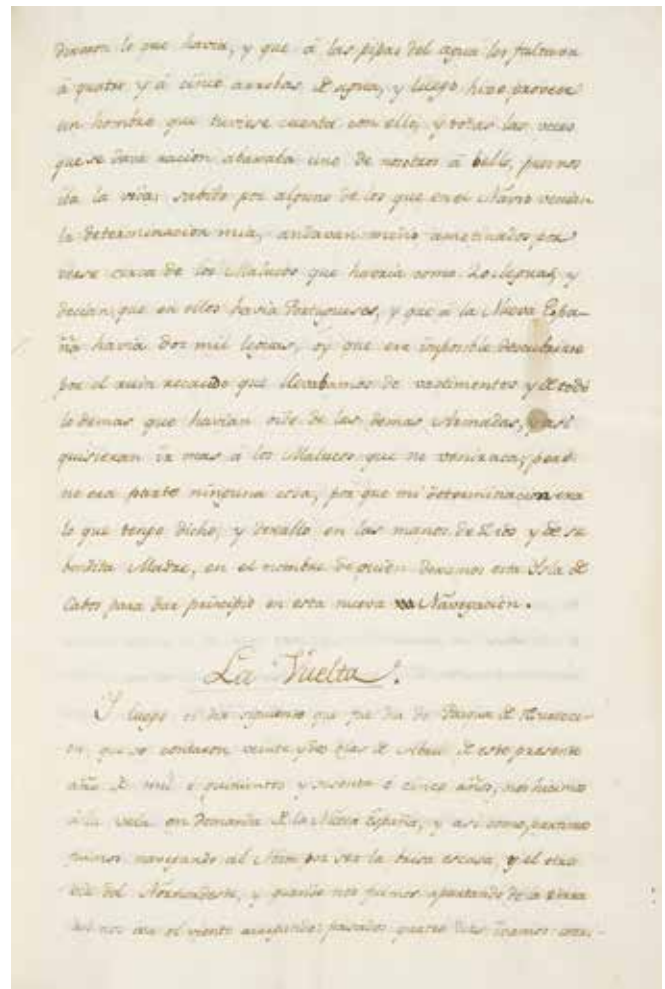 dixeron lo que havia, y que á las pipas del agua les faltava
á quatro y á cinco arrobas de agua, y luego hize proveer
un hombre que tuviese cuenta con ello, y todas las veces
que se dava racion estavala uno de nosotros á bello, pues nos
iba la vida: sabido por alguno de los que en el Navio venian
la determinacion mia, andavan medio amotinados, por
verse cerca de los Malucos que havria como leguas, y
decian que en ellos havia Portugueses, y que á la Nueva Espa-
ña havia dos mil leguas, y que era imposible descubrirse
por el ruin recaudo que llevabamos de vastimentos y de todo
lo demas que havian sido de las demas Armadas, y asi
quisieran ir mas á los Malucos que no venir aca; pero
no era parte ninguna cosa, por que mi determinacion era
lo que tengo dicho, y dexallo en las manos de Dios y de su
bendita Madre, en el nombre de quien dexamos esta Isla de
Cabos para dar principio en esta nueva Navegacion.
La Vuelta.
Y luego el dia siguiente que fue dia de Pascua de Resurrec-
on, que se contaron veinte y dos dias de Abril de este presente
año de mil é quinientos y sesenta é cinco años, nos hicimos
á la vela en demanda de la Nueva España, y asi como partimos
fuimos navegando al por ser la brisa escasa, y el otro
dia del Nornordeste, y quando nos fuimos apartando de la tierra
nos iba el viento pasados quatro dias ibamos